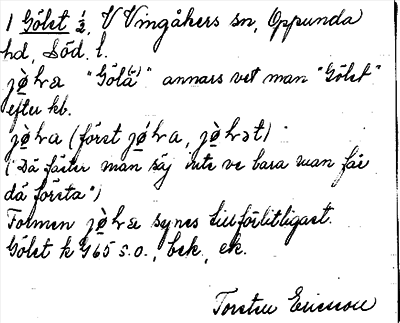 1 Gölet ½, V Vingåkers sn, Oppunda
hd, Söd. l.
jø̀ɫɑ "Göla(n)" annars vet man "Gölet"
efter kb.
jø̀ɫa (först jø̀ɫa, jø̀ɫət)
("Då fäster man säj inte ve bara man får
då första")
Formen jø̀ɫɑ synes tillförlitligast.
Gölet k G65 s.o., bek, ek.
Torsten Ericsson